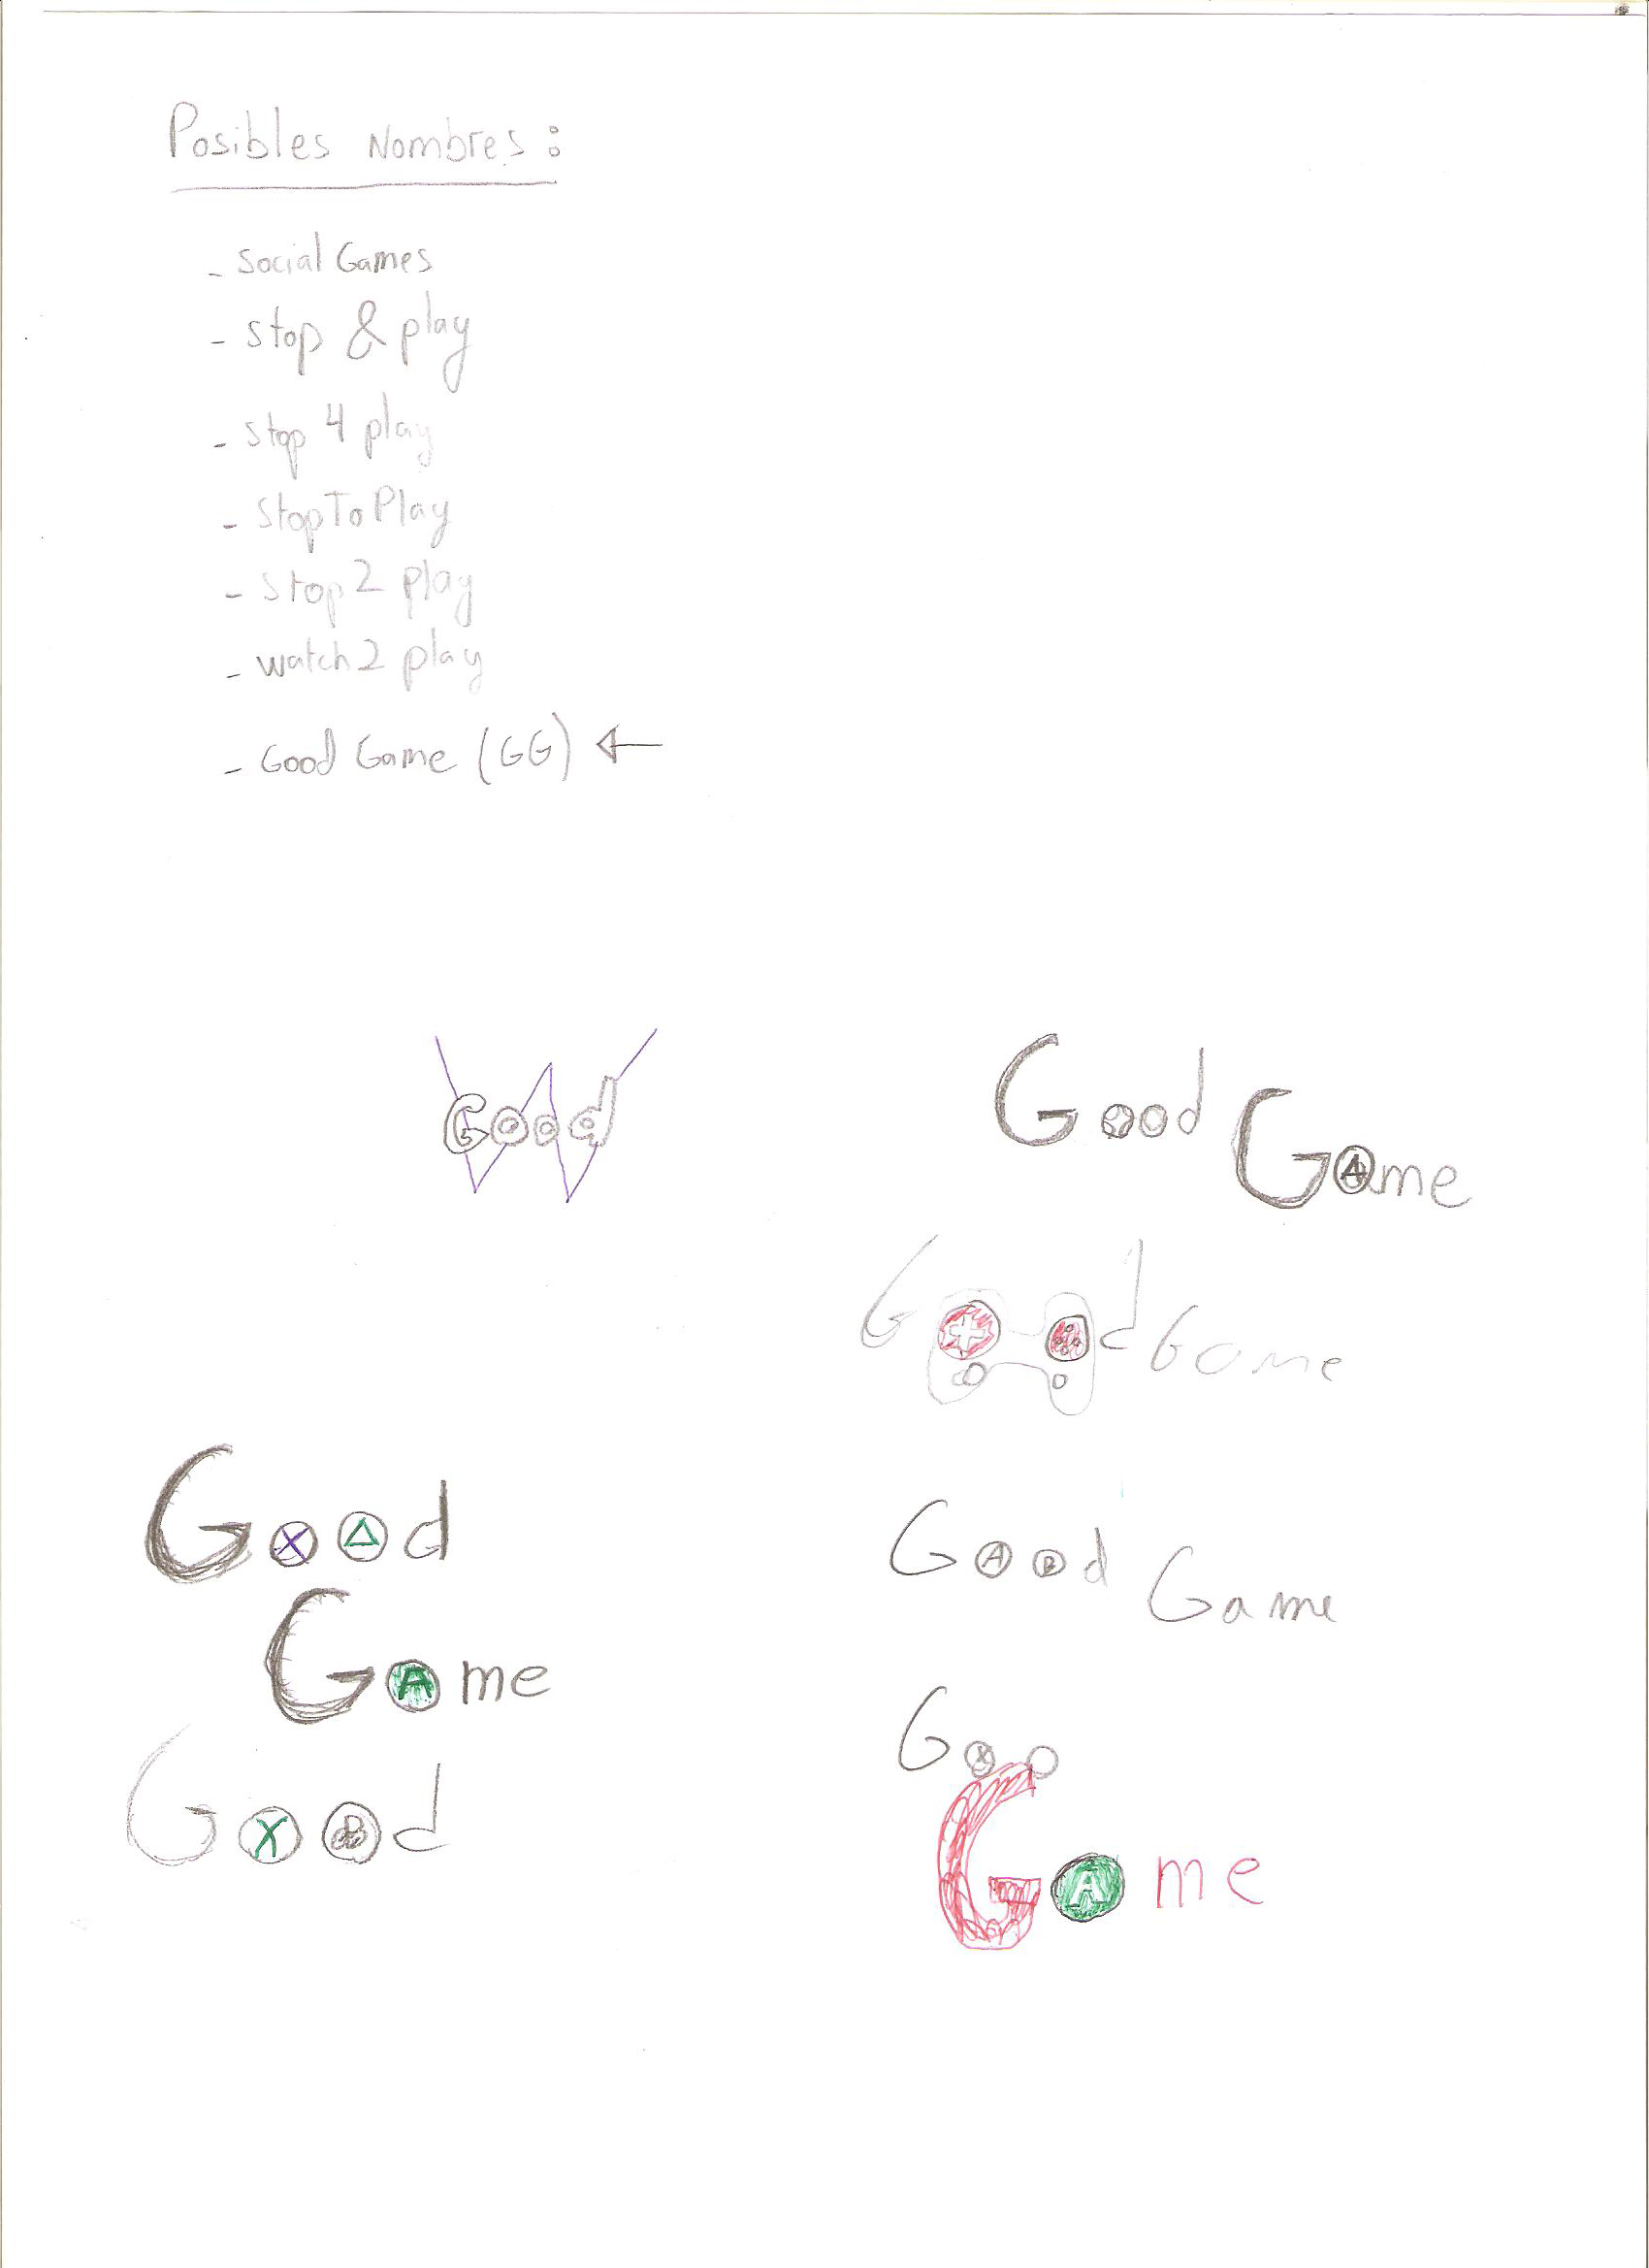 Posibles Nombres:
- Social Games
- stop & play
- stop 4 play
- StopToPlay
- Stop2 play
- watch2 play
- Good Game (GG) ←
Good
Good
Game
Good Game
Good
Game
Good
Game
Goo
Game
Good